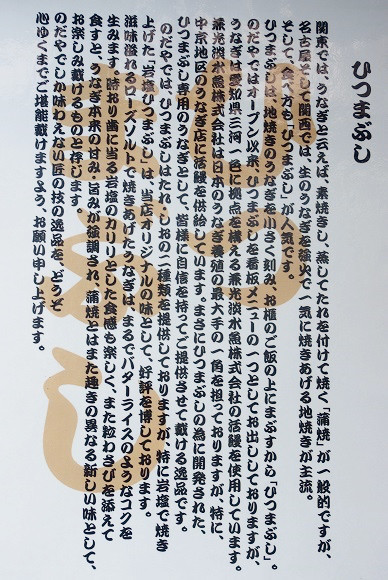 ひつまぶし
関東では、うなぎと云えば、素焼きし、蒸してたれを付けて焼く「蒲焼」が一般的ですが、
名古屋そして関西では、生のうなぎを強火で一気に焼きあげる地焼きが主流。
そして、食べ方も「ひつまぶし」が人気です。
ひつまぶしは、地焼きのうなぎを小さく刻み、お櫃のご飯の上にまぶすから「ひつまぶし」。
のだやではオープン以来、ひつまぶしを看板メニューの一つとしてお出ししておりますが、
うなぎは愛知県三河一色に拠点を構える兼光淡水魚株式会社の活鰻を使用しています。
兼光淡水魚株式会社は日本のうなぎ養殖の最大手の一角を担っておりますが、特に、
中京地区のうなぎ店に活鰻を供給しています。まさにひつまぶしの為に開発された、
ひつまぶし専用のうなぎとして、皆様に自信を持ってご提供させて戴ける逸品です。
のだやでは、ひつまぶしはたれ、しおの二種類を提供しておりますが、特に岩塩で焼き
上げた「岩塩ひつまぶし」は、当店オリジナルの味として、好評を博しております。
滋味溢れるローズソルトで焼きあげたうなぎは、まるでバターライスのようなコクを
生みます。時おり歯に当る岩塩のカリッとした食感も楽しく、また粒わさびを添えて
食すと、うなぎ本来の甘み・旨みが強調され、蒲焼とはまた趣きの異なる新しい味として、
お楽しみ戴けるものと存じます。
のだやでしか味わえない匠の技の逸品を、どうぞ
心ゆくまでご堪能戴けますよう、お願い申し上げます。